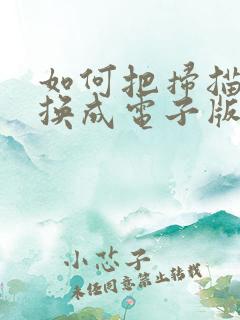 如何把掃描
換成電子版
小芯子
未经同意禁止转载